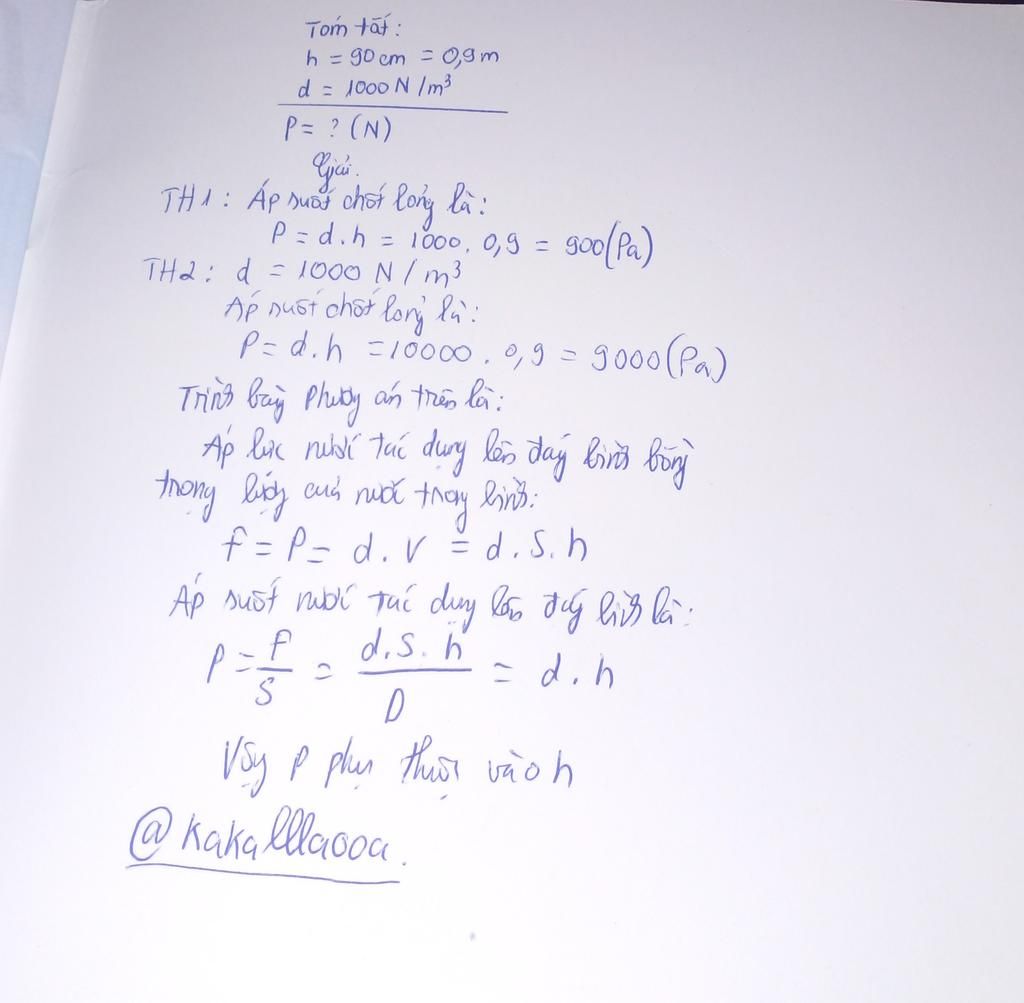 Tóm tắt:
h = 90 cm = 0,9 m
d = 1000 N /m³
P = ? (N)
Giải.
TH1: Áp suất chất lỏng là:
P = d.h = 1000. 0,9 = 900(Pa)
TH2: d = 1000 N / m³
Áp suất chất lỏng là:
P = d.h = 10000 . 0,9 = 9000(Pa)
Trình bày phương án trên là:
Áp lực nước tác dụng lên đáy bình bằng
trọng lượng của nước trong bình:
f = P = d. V = d. S. h
Áp suất nước tác dụng lên đáy bình là:
P = f/S = d.S.h/D = d.h
Vậy P phụ thuộc vào h
@kakalllaooa.